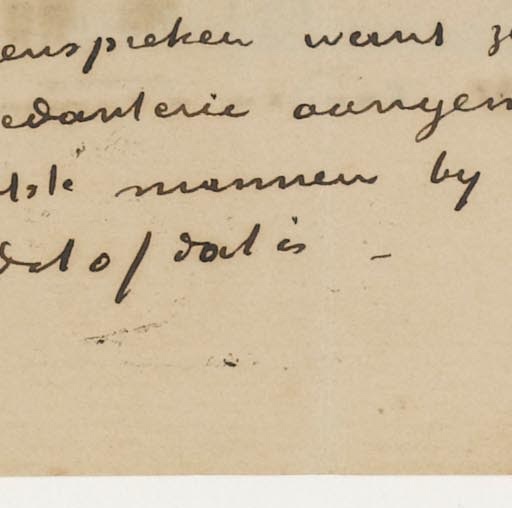 enspreken want z
edanterie aangen
tste mannen by
dit of dat is –